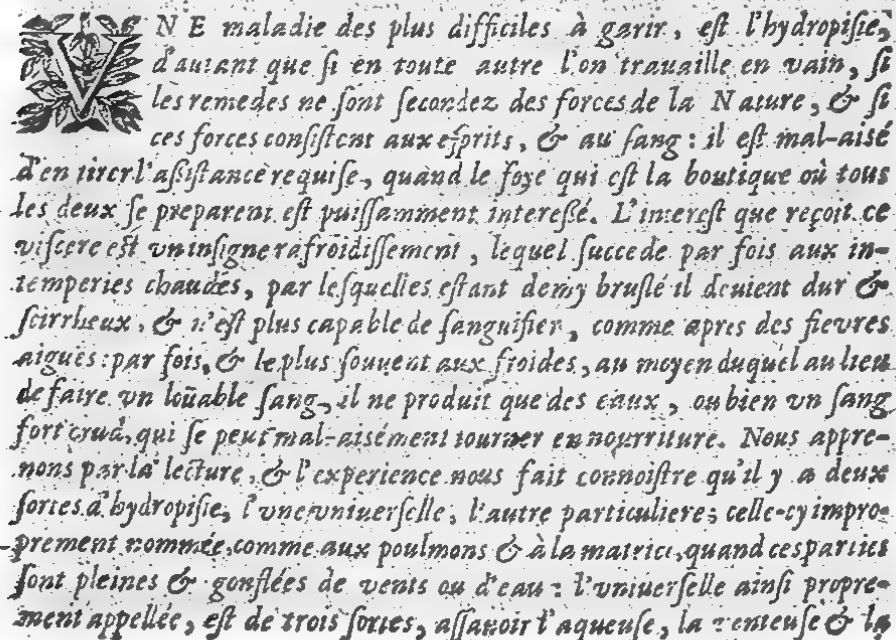 VNE maladie des plus difficiles à garir, eſt l'hydropiſie,
d'autant que ſi en toute autre l'on trauaille en vain, ſi
les remedes ne ſont ſecondez des forces de la Nature, & ſi
ces forces conſiſtent aux eſprits, & au ſang: il eſt mal-aisé
d'en tirer l'aſſiſtance requiſe, quand le foye qui eſt la boutique où tous
les deux ſe preparent eſt puiſſamment intereßé. L'intereſt que reçoit ce
viſcere eſt vn inſigne rafroidiſſement, lequel ſuccede par fois aux in-
temperies chaudes, par leſquelles eſtant demy bruſlé il deuient dur &
ſcirrheux, & n'eſt plus capable de ſanguifier, comme apres des fievres
aiguës: par fois, & le plus ſouuent aux froides, au moyen duquel au lieu
de faire vn loüable ſang, il ne produit que des eaux, ou bien vn ſang
fort crud, qui ſe peut mal-aisément tourner en nourriture. Nous appre-
nons par la lecture, & l'experience nous fait connoiſtre qu'il y a deux
ſortes d'hydropiſie, l'vne vniuerſelle, l'autre particuliere; celle-cy impro-
prement nommée, comme aux poulmons & à la matrice, quand ces parties
ſont pleines & gonflées de vents ou d'eau: l'vniuerſelle ainſi propre-
ment appellée, eſt de trois ſortes, aſſauoir l'aqueuſe, la venteuſe & la